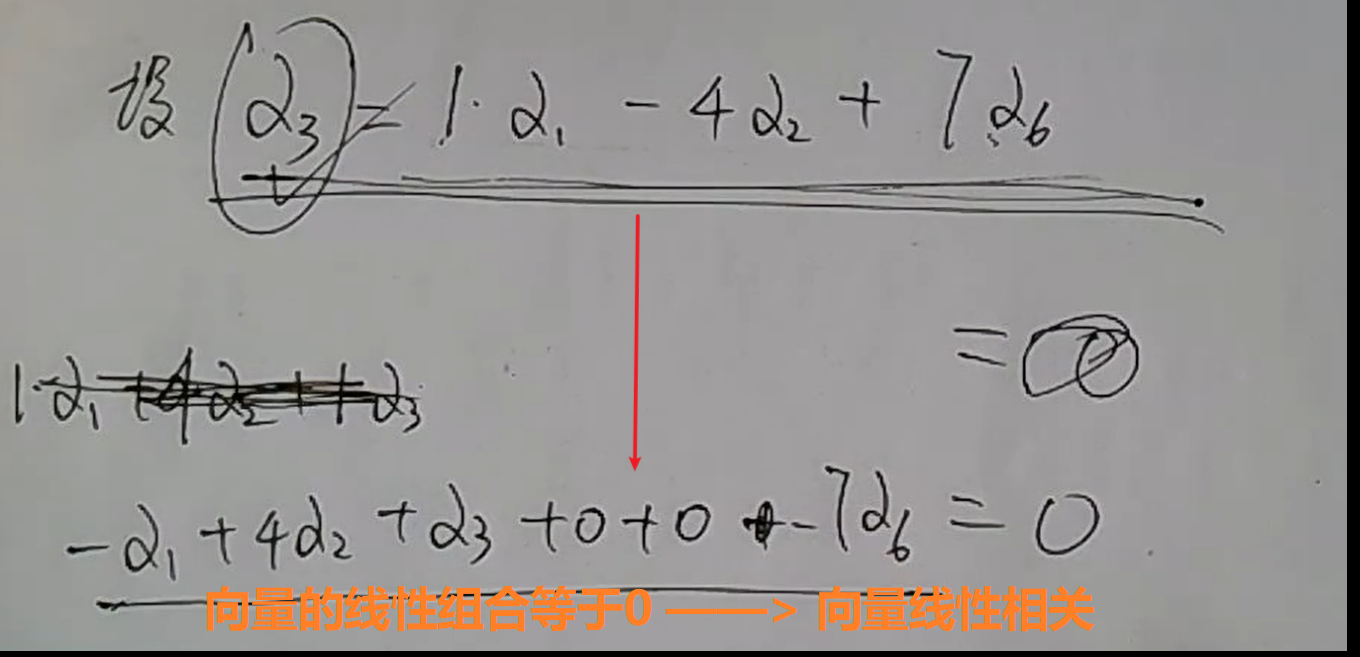 设 α₃ = 1·α₁ - 4α₂ + 7α₆
= 0
1·α₁ + 4α₂ + 1α₃
-α₁ + 4α₂ + α₃ + 0 + 0 - 7α₆ = 0
向量的线性组合等于0 ——> 向量线性相关